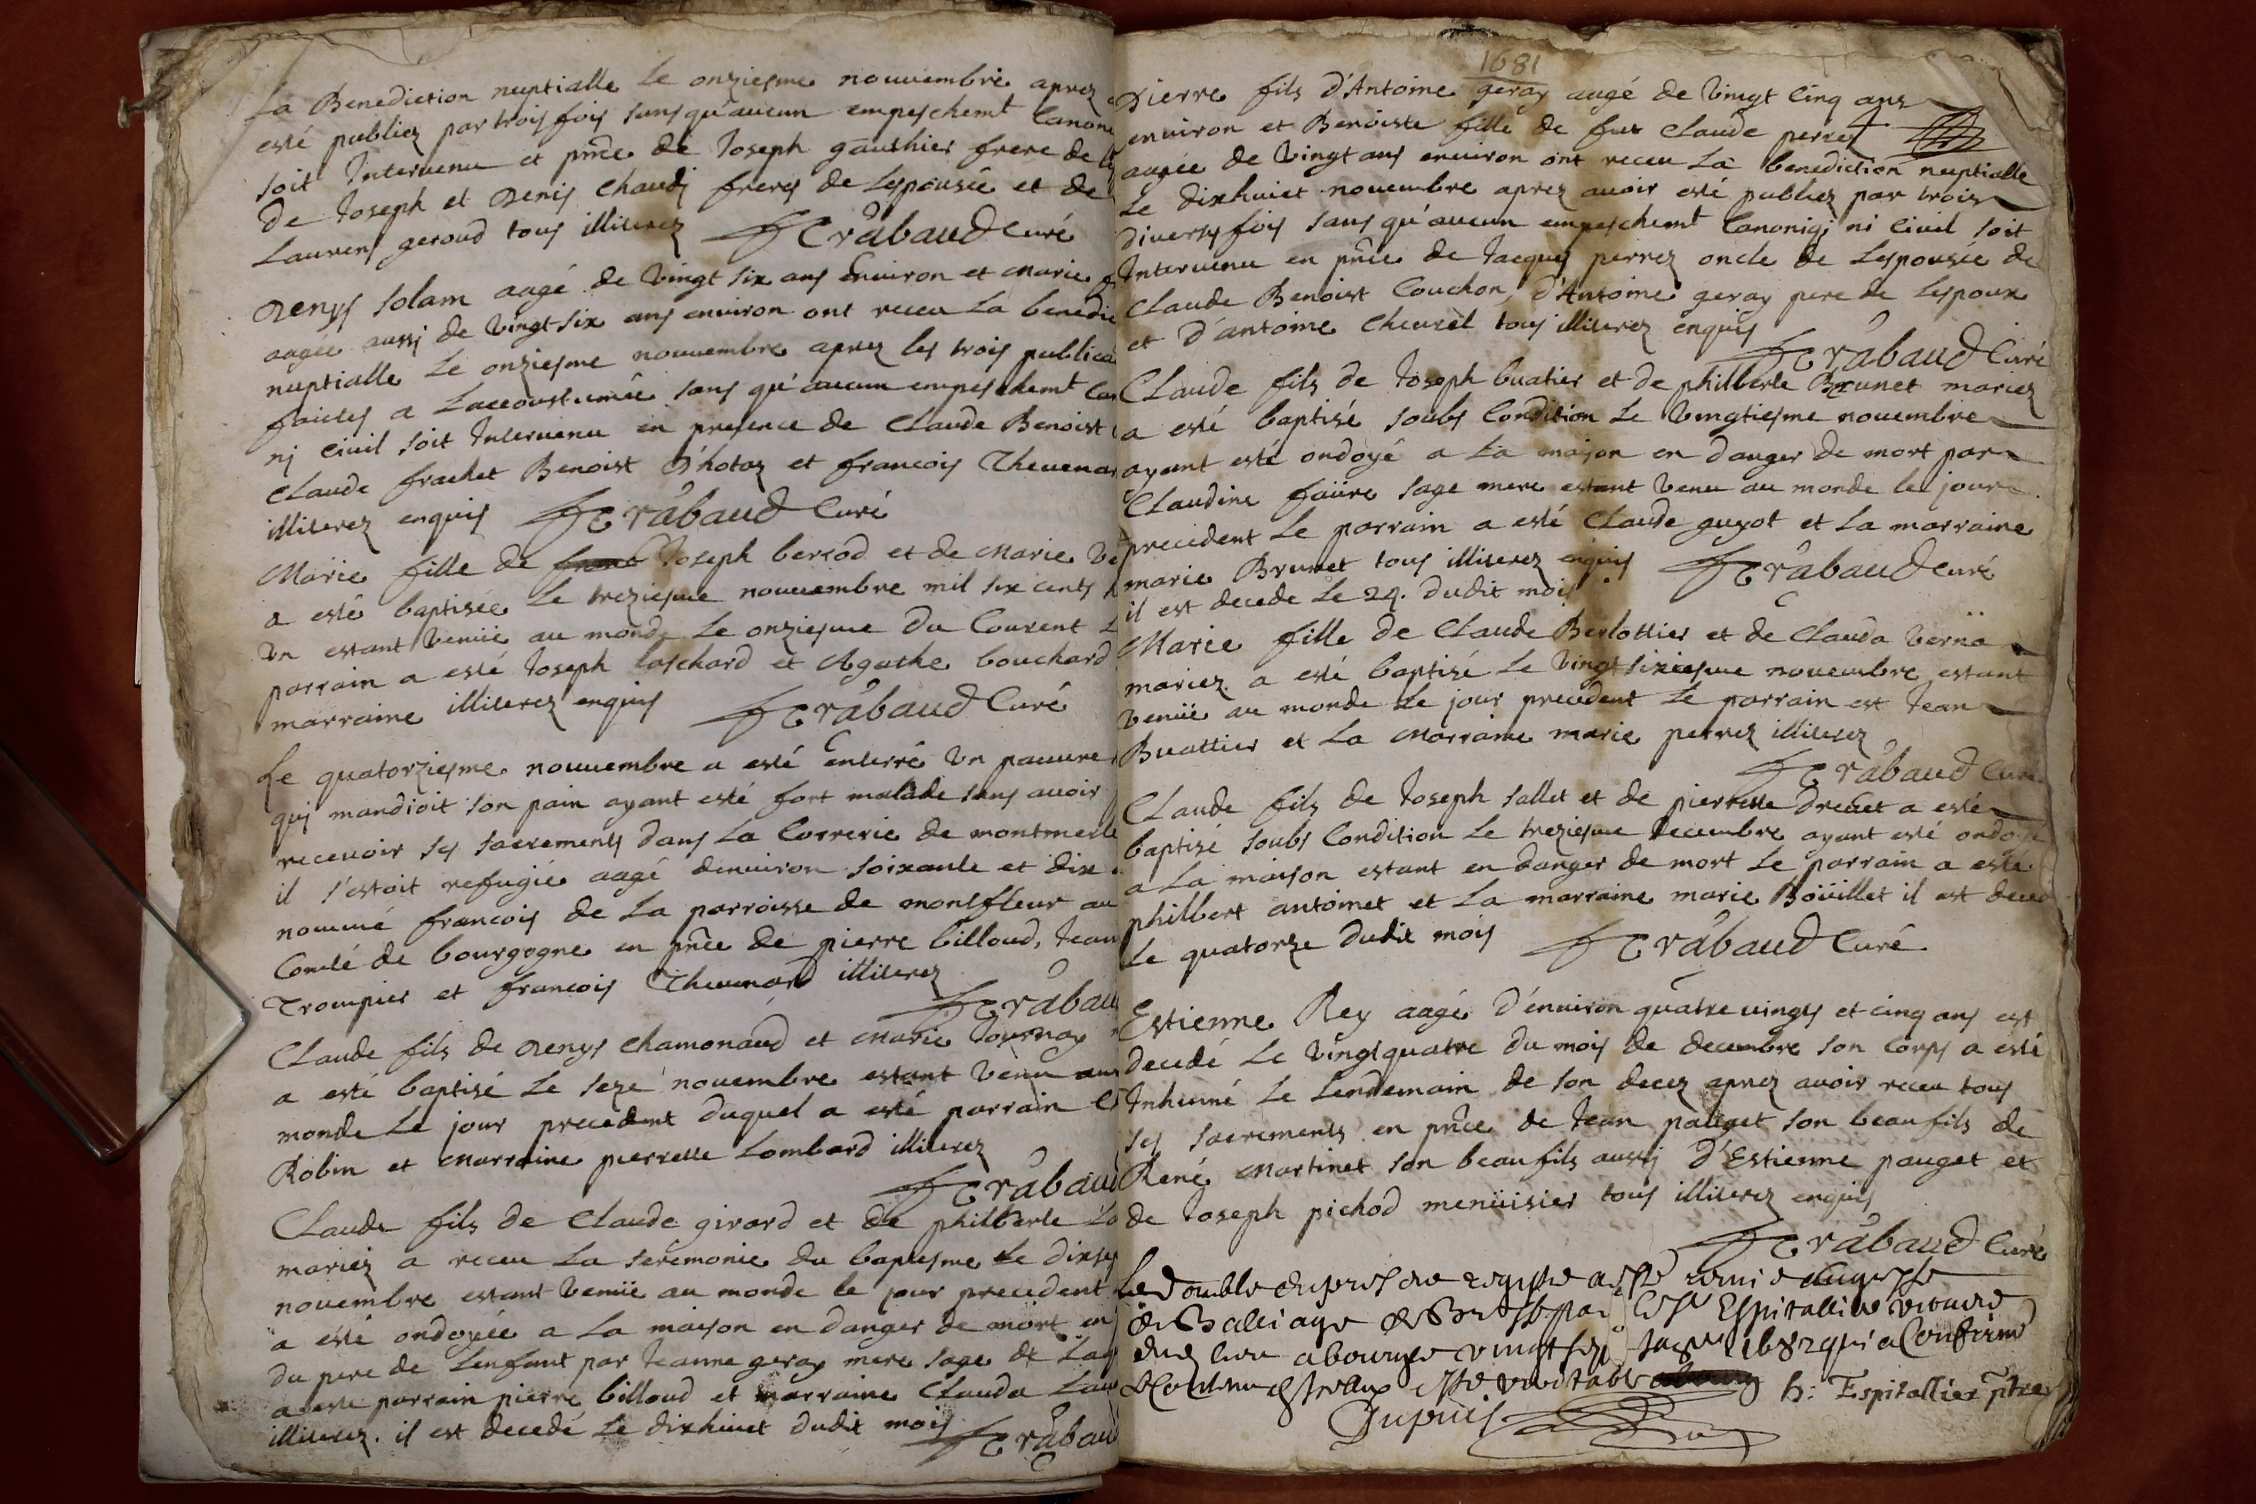 La Benediction nuptialle Le onziesme nouuembre aprez
esté publiez par trois fois sans qu'aucun empeschemt Canoni
soit Interuenu et pnce de Joseph gauthier frere de
de Joseph et Denis Chaudj freres de Lespousée et de
Laurens geroud tous illiterez Trabaud Curé
Denys Solam aagé de Vingt six ans Enuiron et Marie
aagée aussj de Vingt-six ans enuiron ont receu La benedic
nuptialle Le onziesme nouuembre aprez les trois publica
faictes a Laccoustumée sans qu'aucun empeschemt Can
nj Ciuil soit Interuenu en presence de Claude Benoist
Claude frachet Benoist D'hotaz et francois Theuenar
illiterez enquis Trabaud Curé
Marie fille de Joseph bersod et de Marie Ve
a esté baptisée Le treziesme nouuembre mil six cents
Vn estant Venüe au monde Le onziesme du Courent
parrain a esté Joseph Laschard et Agathe bouchard
marraine illiterez enquis Trabaud Curé
Le quatorziesme nouuembre a esté enterré Vn pauure
quj mandioit son pain ayant esté fort malade sans auoir
receuoir ses sacrements dans La Correrie de montmerle
il s'estoit refugié aagé denuiron soixante et dix
nommé francois de La parroisse de montfleur au
Comté de bourgogne en pnce de pierre billoud, Jean
Trompier et francois Theuenard illiterez
Trabau
Claude fils de Denys Chamonaud et Marie Tournay
a esté baptisé Le seze nouembre estant Venu au
monde Le jour precedent duquel a esté parrain
Robin et Marraine pierrette Lombard illiterez
Trabaud
Claude fils de Claude girard et de philberte
mariez a receu La seremonie du baptesme Le dixsep
nouembre estant Venüe au monde le jour precedent
a esté ondoyée a La maison en danger de mort en
du pere de Lenfant par Jeanne geray mere sage de
a esté parrain pierre billoud et marraine Clauda
illiterez. il est decedé Le dixhuict dudit mois Trabau
1681
Pierre fils d'Antoine geray aagé de Vingt Cinq ans
enuiron et Benoiste fille de feu Claude perrez
aagée de Vingt ans enuiron ont receu La benediction nuptialle
Le dixhuict nouembre aprez auoir esté publiez par trois
diuerses fois sans qu'aucun empeschemt Canoniq; ni Ciuil soit
Interuenu en pnce de Jacques perrez oncle de Lespousée de
Claude Benoist Couchon, d'Antoine geray pere de Lespoux
et d'antoine Cheurel tous illiterez enquis
Trabaud Curé
Claude fils de Joseph buatier et de philberte Brunet mariez
a esté baptisé soubs Condition Le Vingtiesme nouembre
ayant esté ondoyé a La maison en danger de mort par
Claudine faüre sage mere estant Venu au monde le jour
precedent Le parrain a esté Claude guyot et La marraine
marie Brunet tous illiterez enquis Trabaud Curé
il est decede Le 24. dudit mois
Marie fille de Claude Berlottier et de Clauda Verna
mariez a esté baptisé Le Vingt sixiesme nouembre estant
Venüe au monde Le jour precedent Le parrain est Jean
Buattier et La Marraine marie perrez illiterez
Trabaud Curé
Claude fils de Joseph sallet et de pierrette dreuet a esté
baptisé soubs Condition Le treziesme decembre ayant esté ondoyé
a La maison estant en danger de mort Le parrain a esté
philbert antoinet et La marraine marie Boüillet il est deced
Le quatorze dudit mois Trabaud Curé
Estienne Rey aagé d'enuiron quatre uingts et cinq ans est
decedé Le Vingtquatre du mois de decembre son corps a esté
Inhumé Le Lendemain de son decez aprez auoir receu tous
ses sacrements en pnce de Jean pauget son beaufils de
René Martinet son beaufils aussj d'Estienne pauget et
de Joseph pichod menüisier tous illiterez enquis
Trabaud Curé
Le double du present registre a esté remis au greffe
du Balliage de Bresse par Espitallier vicaire
dud lieu a bourg ce vingt 1682 qui a Confirmé
Le Contenu estre veritable h: Espitallier ptre
Dupuis